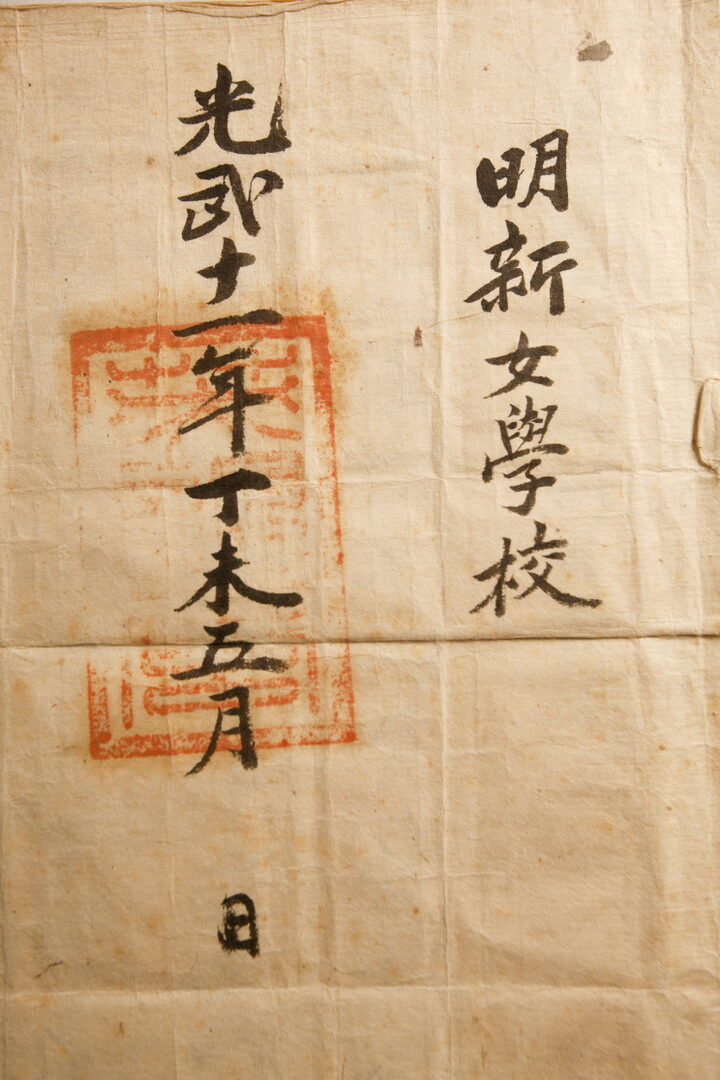 明新女學校
光武十一年丁未五月 日